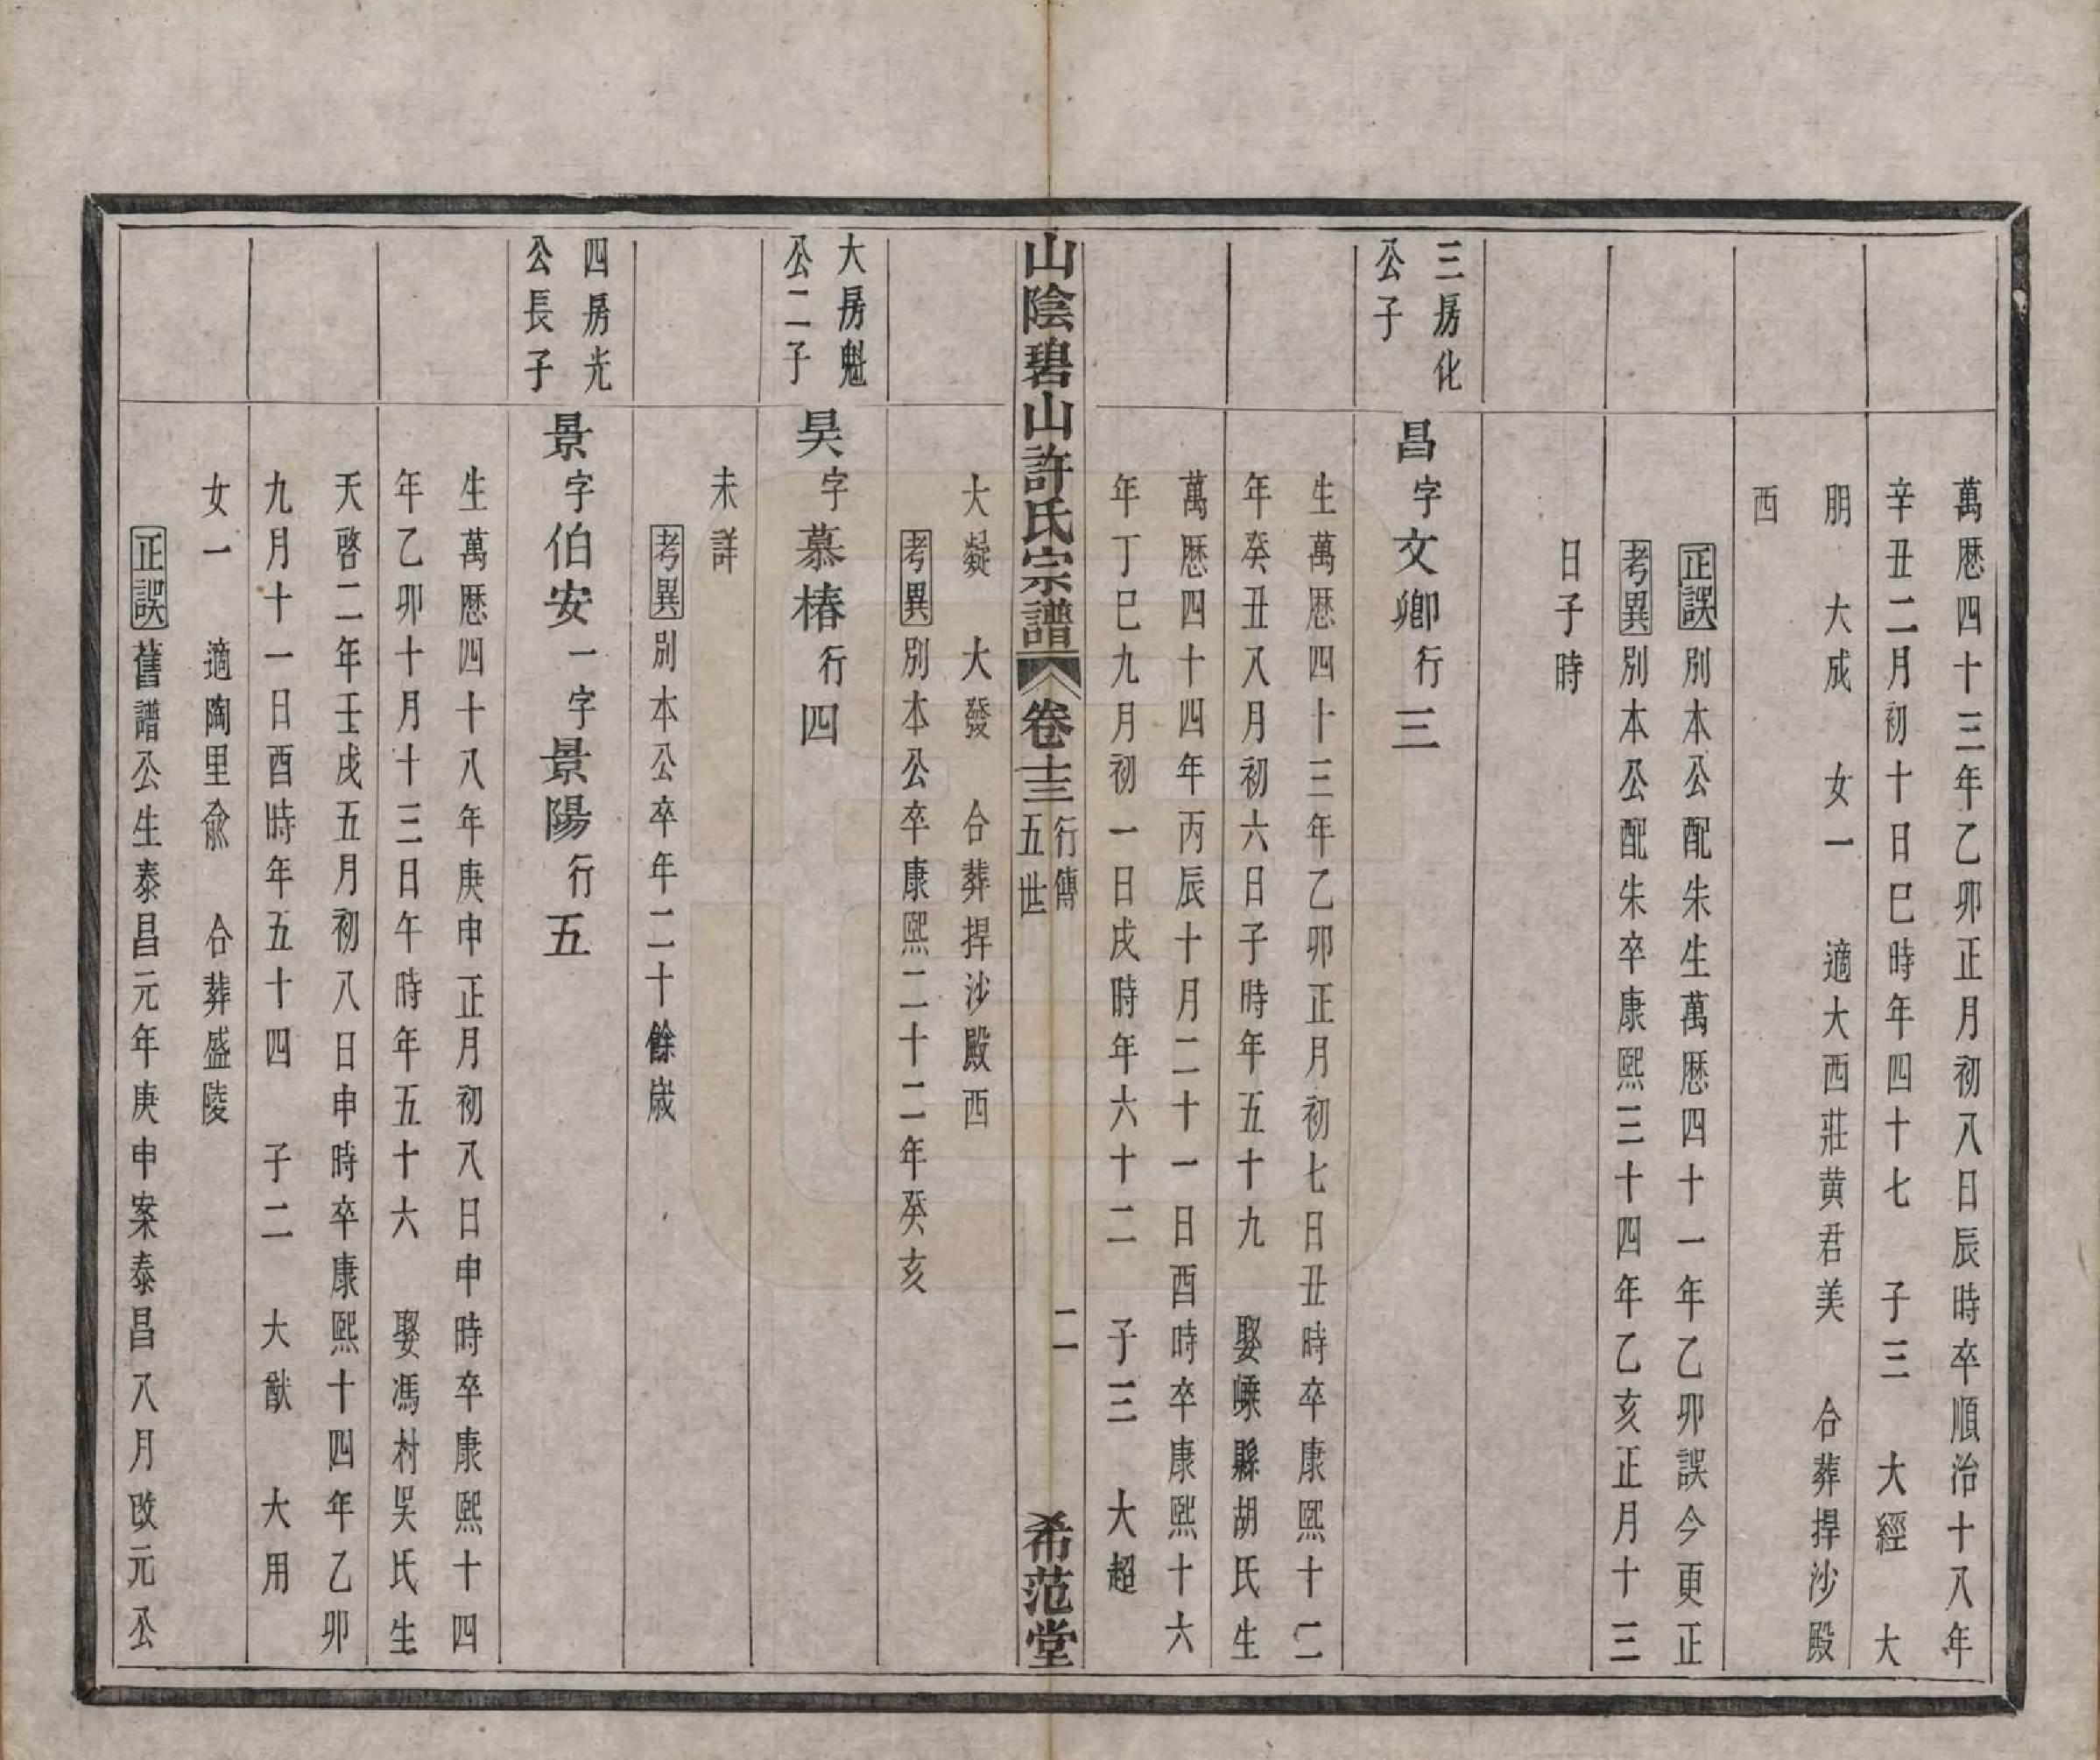 萬厯四十三年乙卯正月初八日辰時卒順治十八年
辛丑二月初十日巳時年四十七 子三 大經 大
朋 大成 女一 適大西莊黄君美 合葬捍沙殿
西
正誤別本公配朱生萬厯四十一年乙卯誤今更正
考異別本公配朱卒康熙三十四年乙亥正月十三
日子時
三房化
公子
昌字文卿行三
生萬厯四十三年乙卯正月初七日丑時卒康熙十二
年癸丑八月初六日子時年五十九 娶嵊縣胡氏生
萬厯四十四年丙辰十月二十一日酉時卒康熙十六
年丁巳九月初一日戌時年六十二 子三 大超
山陰碧山許氏宗譜 卷十三 行傳 五世 二 希范堂
大凝 大發 合葬捍沙殿西
考異別本公卒康熙二十二年癸亥
大房魁
公二子
昊字慕椿行四
未詳
考異別本公卒年二十餘嵗
四房光
公長子
景字伯安一字景陽行五
生萬厯四十八年庚申正月初八日申時卒康熙十四
年乙卯十月十三日午時年五十六 娶馮村吳氏生
天啓二年壬戌五月初八日申時卒康熙十四年乙卯
九月十一日酉時年五十四 子二 大猷 大用
女一 適陶里兪 合葬盛陵
正誤舊譜公生泰昌元年庚申案泰昌八月改元公